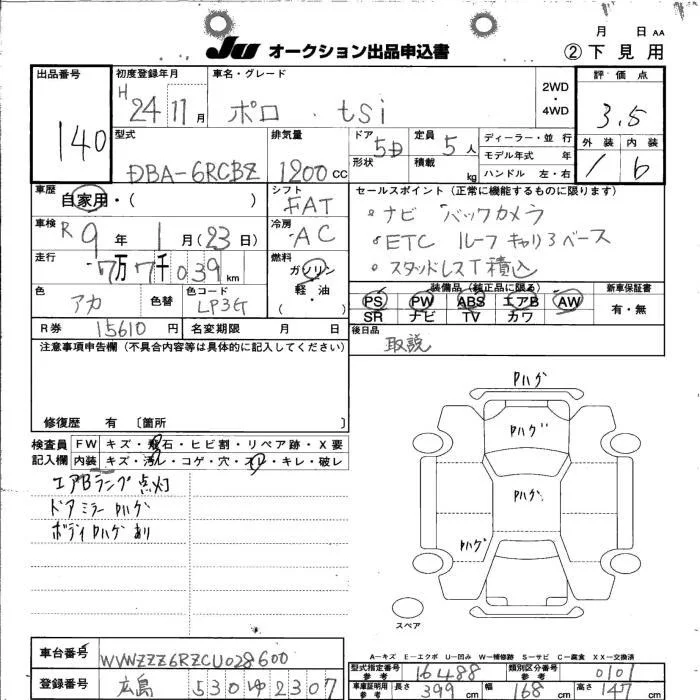 月 日 AA
JU オークション出品申込書 ②下見用
出品番号 初度登録年月 車名・グレード 2WD・4WD 評価点
140 H 24 11月 ポロ tsi 3.5
型式 排気量 ドア 定員 ディーラー・並行 外装 内装
DBA-6RCBZ 1200cc 5D 5人 モデル年式 年
形状 積載 kg ハンドル 左・右
車歴 自家用・( ) シフト セールスポイント(正常に機能するものに限ります)
FAT
・ナビ バックカメラ
車検 R9年1月(23日) 冷房 AC
・ETC ルーフキャリアベース
走行 7万7千039km 燃料 ガソリン 軽・油 ( )
・スタッドレスT積込
装備品(純正品に限る) 新車保証書
色 アカ 色替 色コード LP3G
PS PW ABS エアB AW 有・無
SR ナビ TV カワ
R券 15610円 名変期限 月 日
後日品
取説
注意事項申告欄(不具合内容等は具体的に記入してください)
修復歴 有 〔箇所 〕
検査員 FW キズ・飛石・ヒビ割・リペア跡・X要
記入欄 内装 キズ・汚れ・コゲ・穴・スレ・キレ・破レ
エアBランプ点灯
ドアミラーハゲ
ボディハゲあり
スペア
A―キズ E―エクボ U―凹み W―補修跡 S―サビ C―腐食 XX―交換済
車台番号 WVWZZZ6RZCU028600
登録番号 広島 530 ゆ 2307
型式指定番号 参考 16488 類別区分番号 参考 0101
車庫証明用 参考 長さ 399cm 幅 168cm 高さ 147cm